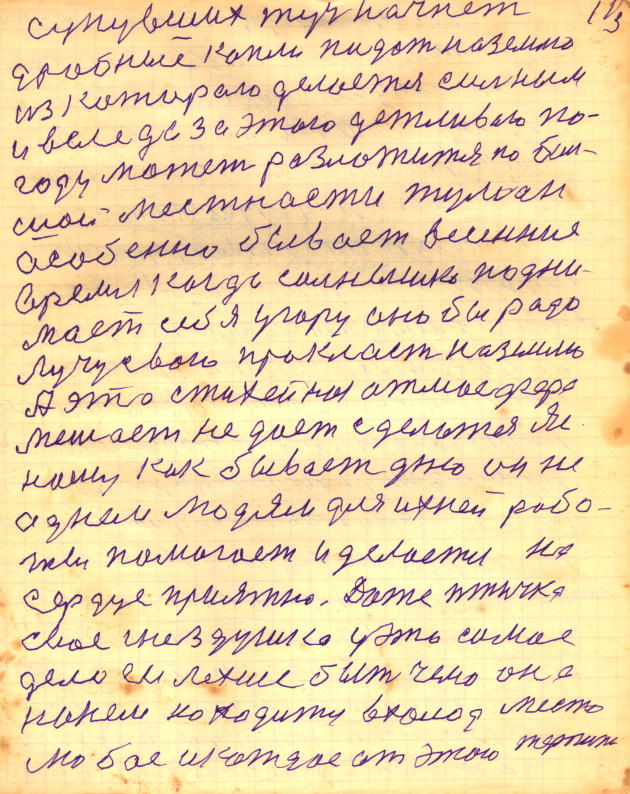 113
сунувших туч начнет
дробный капли пидот наземлю
из катораго делается силным
и вследс за этого детливаю по-
году может разложится по бıл-
шой местности тулван
асобенно бывает весинния
время когдо солнышко подни-
мает себя угору оно бы радо
лучу своего прокласт наземлю
А это стихейноя атмасфера
мешает не дает сделатся яс
ному как бывает дню он не
аднем людям для ихней рабо-
ты помогает и делости на
сердце приятно. Даже птичка
свое гнездушка уэто самое
дело ей лехше быт чего она
нанем находиту вхолод место
любое и каждое от этого терпит